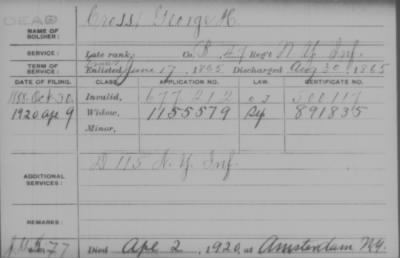 DEAD
NAME OF SOLDIER: Cross, George H.
SERVICE: Late rank, Co. B, 47 Reg't N.Y. Inf.
TERM OF SERVICE: Enlisted June 17, 1865 Discharged Aug 30, 1865
DATE OF FILING. CLASS. APPLICATION NO. LAW. CERTIFICATE NO.
1888. Oct. 30. Invalid, 677 212
1920 Ap 9 Widow, 1155579 891835
Minor,
ADDITIONAL SERVICES: D 115 N.Y. Inf.
REMARKS:
Died Apl 2, 1920, at Amsterdam N.Y.